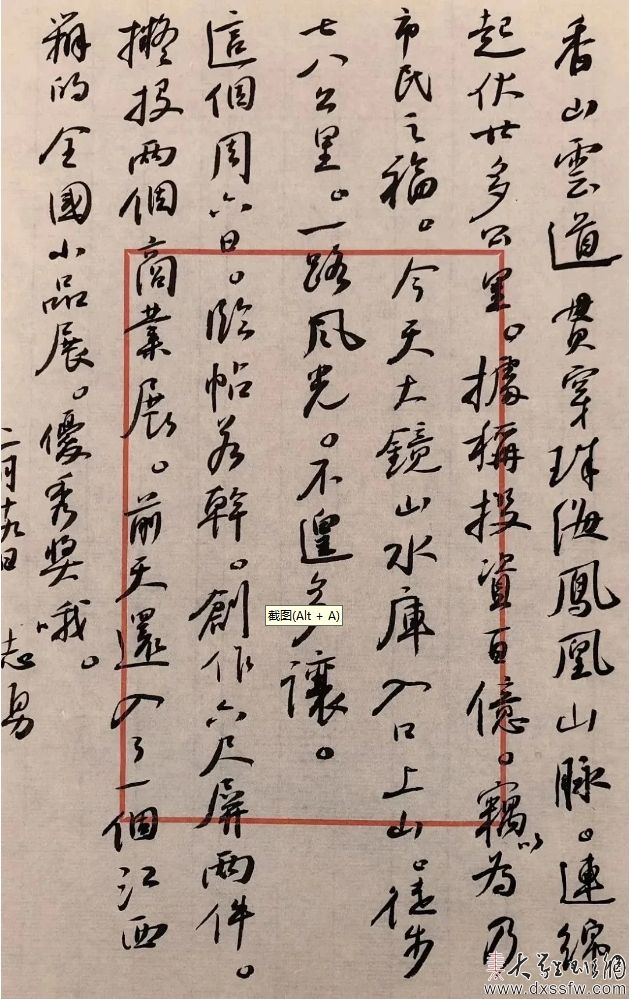 香山雲道貫穿珠海鳳凰山脉。連綿
起伏廿多公里。據稱投資百億。竊以為乃
市民之福。今天大鏡山水庫入口上山。徒步
七八公里。一路風光。不遑多讓。
這個周六日。臨帖若幹。創作六尺屏兩件。
擬投兩個商業展。前天還入了一個江西
辦的全國小品展。優秀獎哦。
二月十九日 志勇
截图(Alt + A)
大学生书法网
www.dxssfw.com